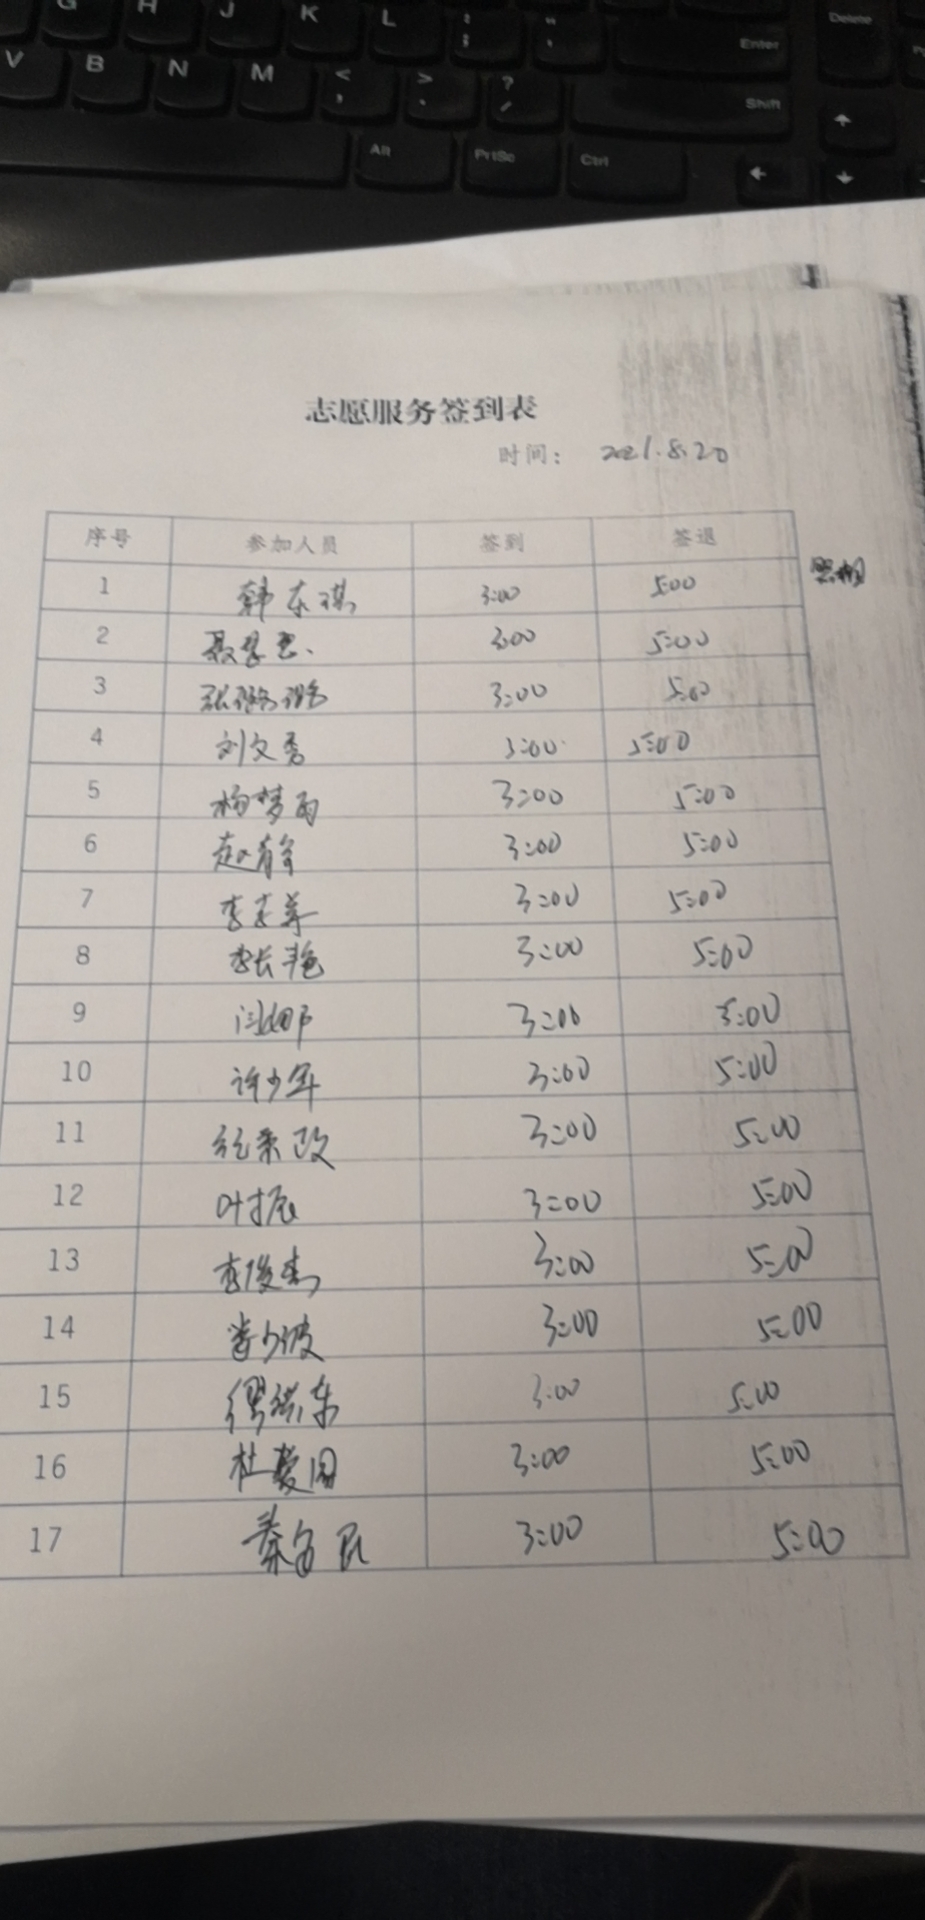 G H J K L : ; " ' Enter Delete
V B N M < , > . ? / Shift
Alt PrtSc Ctrl
志愿服务签到表
时间： 2021.8.20
序号 参加人员 签到 签退
1 韩东琪 3:00 5:00 照相
2 3:00 5:00
3 张璐璐 3:00 5:00
4 刘文秀 3:00 5:00
5 杨梦雨 3:00 5:00
6 3:00 5:00
7 3:00 5:00
8 李长艳 3:00 5:00
9 闫娜 3:00 5:00
10 许少军 3:00 5:00
11 3:00 5:00
12 叶振 3:00 5:00
13 李俊杰 3:00 5:00
14 3:00 5:00
15 3:00 5:00
16 3:00 5:00
17 3:00 5:00